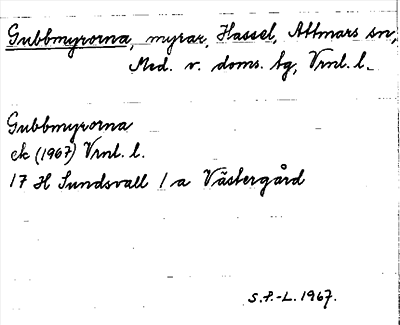 Gubbmyrorna, myrar, Hassel, Attmars sn,
Med. v. doms. tg, Vrnl. l.
Gubbmyrorna
ek (1967) Vrnl. l.
17 H Sundsvall 1 a Västergård
S.P.-L. 1967.